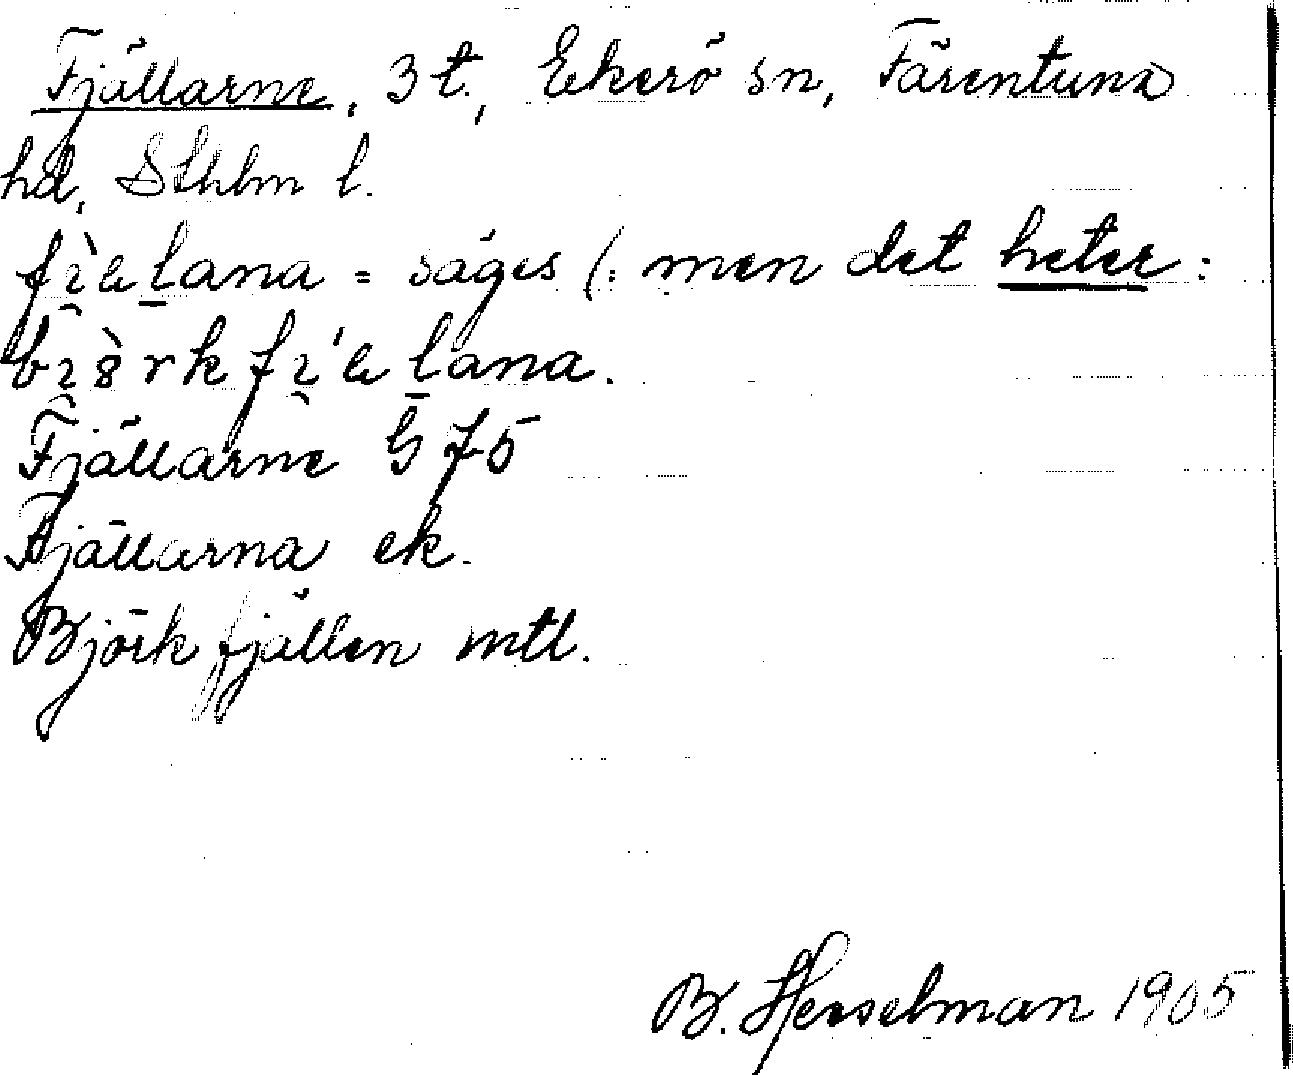 Fjällarne, 3 t., Ekerö sn, Färentuna
hd, Sthlm l.
fı̯̀ælana = säges (: men det heter:
bı̯ö̀rkfı̯́ælana.
Fjällarne G 75
Fjällarna ek.
Björkfjällen mtl.
B. Hesselman 1905